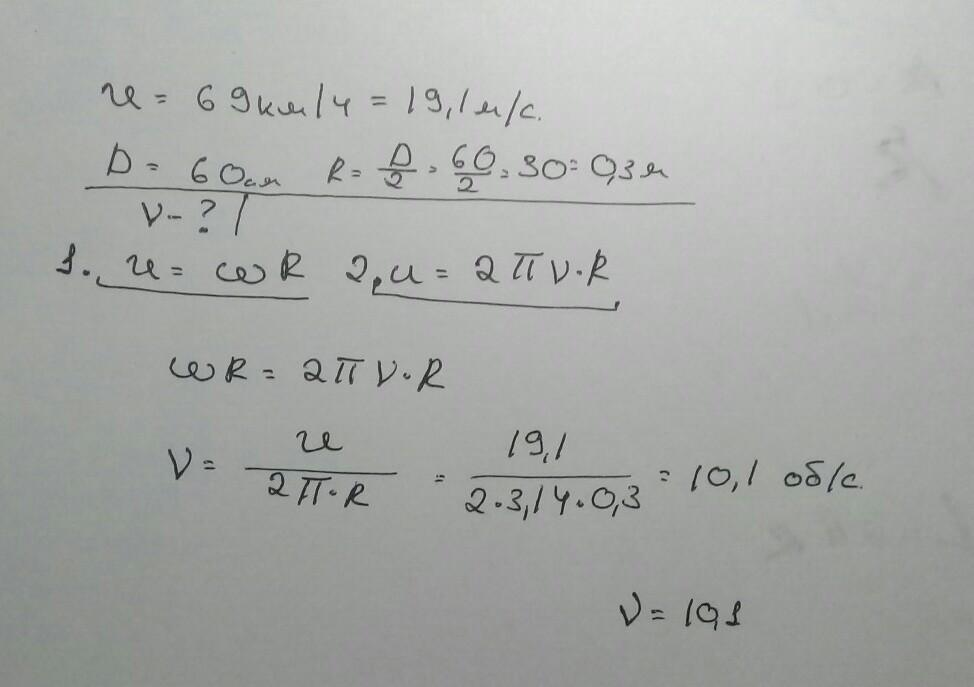 u = 69км/ч = 19,1м/с.
D = 60см R = D/2 = 60/2 = 30 = 0,3м
ν - ? |
1. u = ωR 2, u = 2πν·R
ωR = 2πν·R
ν = u/2π·R = 19,1/2·3,14·0,3 = 10,1 об/с.
ν = 10,1